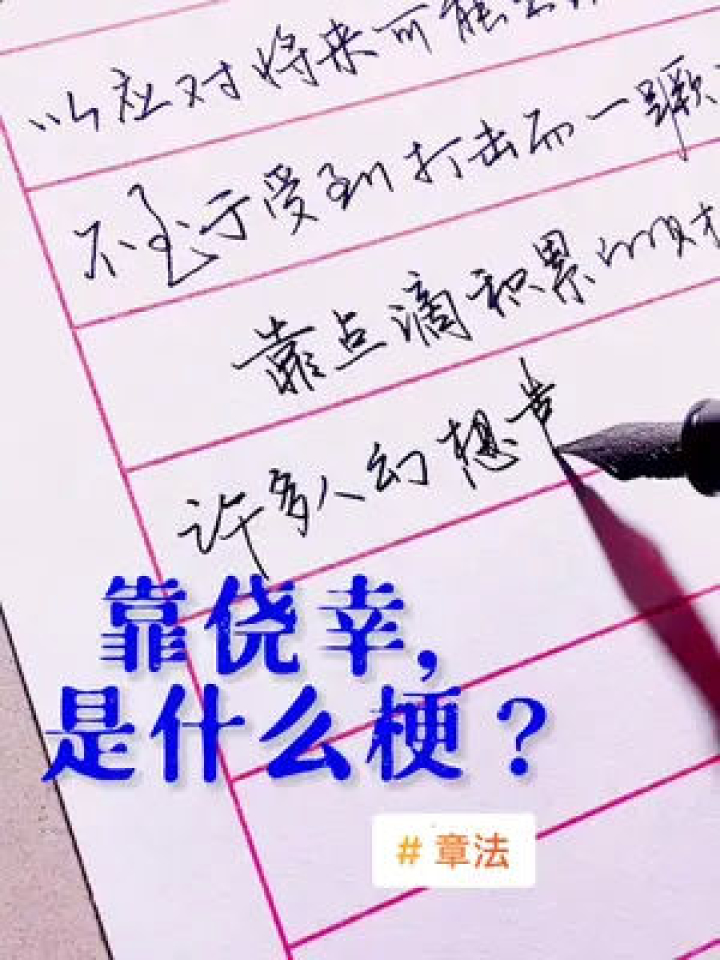 以应对将来可能
不至于受到打击而一蹶
靠点滴积累的
许多人幻想
靠侥幸,
是什么梗？
# 章法